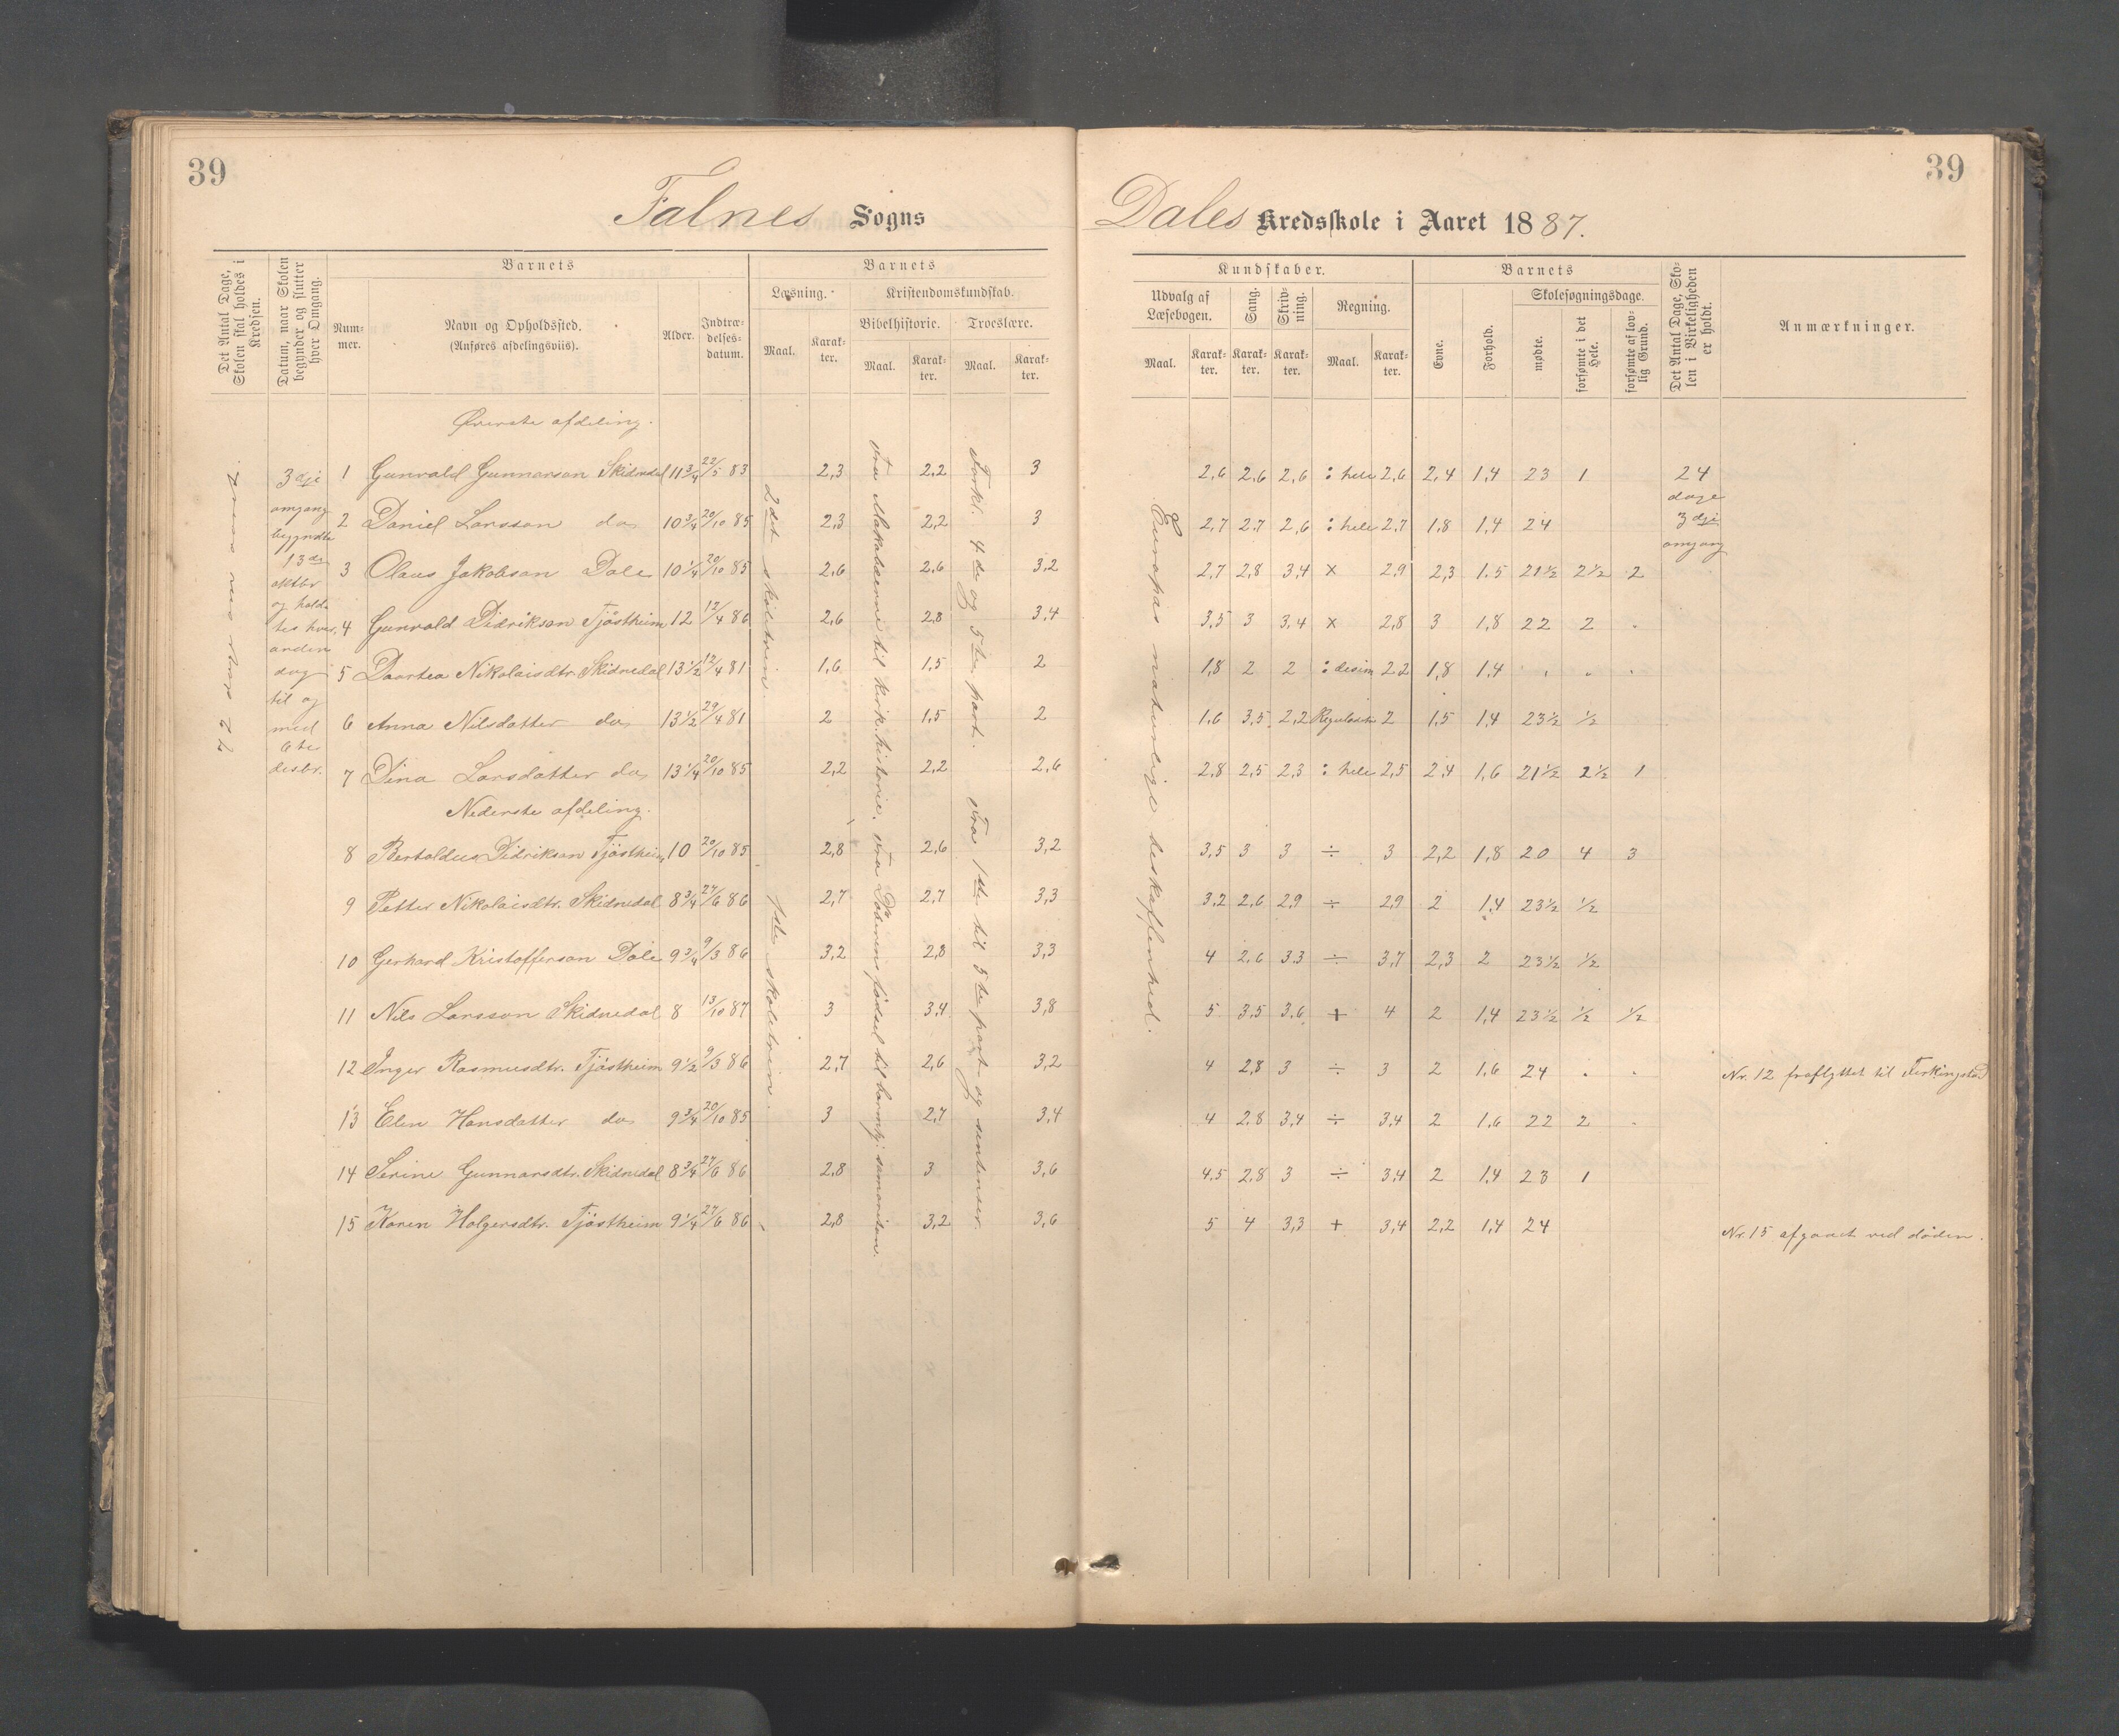 39
39
Falnes Sogns
Dales Kredsskole i Aaret 1887.
Det Antal Dage, Skolen skal holdes i Kredsen.
Datum, naar Skolen begynder og slutter hver Omgang.
Barnets
Nummer.
Navn og Opholdssted.
(Anføres afdelingsviis).
Alder.
Indtrædelsesdatum.
Barnets
Læsning.
Maal.
Karakter.
Kristendomskundskab.
Bibelhistorie.
Maal.
Karakter.
Troeslære.
Maal.
Karakter.
Kundskaber.
Udvalg af Læsebogen.
Maal.
Karakter.
Sang.
Karakter.
Skrivning.
Karakter.
Regning.
Maal.
Karakter.
Barnets
Evne.
Forhold.
Skolesøgningsdage.
mødte.
forsømte i det Hele.
forsømte af lovlig Grund.
Det Antal Dage, Skolen i Virkeligheden er holdt.
Anmærkninger.
3dje
omgang
begyndte
13de
oktbr
og holdtes hver
anden
dag
til og
med
6te
desbr.
2det skoletrin.
1ste skoletrin.
Fra Makabæerne til kirk.historie.
Fra Döberens födsel til barmhj. samaritan.
Forkl. 4de og 5te part.
Fra 1ste til 5te part og sentenser.
Europas naturlige beskaffenhed.
24
dage
3dje
omgang
Øverste afdeling.
1 Gunvald Gunnarson Skidnedal 11 3/4 22/5 83 2,3 2,2 3 2,6 2,6 2,6 : hele 2,6 2,4 1,4 23 1
2 Daniel Larsson do 10 3/4 20/10 85 2,3 2,2 3 2,7 2,7 2,6 : hele 2,7 1,8 1,4 24
3 Olaus Jakobson Dale 10 1/4 20/10 85 2,6 2,6 3,2 2,7 2,8 3,4 × 2,9 2,3 1.5 21½ 2½ 2
4 Gunvald Didrikson Tjöstheim 12 12/4 86 2,6 2,8 3,4 3,5 3 3,4 × 2,8 3 1,8 22 2 .
5 Daartea Nikolaisdtr. Skidnedal 13½ 12/4 81 1,6 1,5 2 1,8 2 2 : desim 2,2 1,8 1,4 . . .
6 Anna Nilsdatter do 13½ 29/4 81 2 1,5 2 1,6 3,5 2,2 Reguladetri 2 1,5 1,4 23½ ½
7 Dina Larsdatter do 13 1/4 20/10 85 2,2 2,2 2,6 2,8 2,5 2,3 : hele 2,5 2,4 1,6 21½ 2½ 1
Nederste afdeling.
8 Bertoldus Didrikson Tjöstheim 10 20/10 85 2,8 2,6 3,2 3,5 3 3 ÷ 3 2,2 1,8 20 4 3
9 Petter Nikolaisdtr. Skidnedal 8 3/4 27/6 86 2,7 2,7 3,3 3,2 2,6 2,9 ÷ 2,9 2 1,4 23½ ½
10 Gerhard Kristofferson Dale 9 3/4 9/3 86 3,2 2,8 3,3 4 2,6 3.3 ÷ 3,7 2,3 2 23½ ½
11 Nils Larsson Skidnedal 8 13/10 87 3 3,4 3,8 5 3,5 3,6 + 4 2 1,4 23½ ½ ½
12 Inger Rasmusdtr. Tjöstheim 9½ 9/3 86 2,7 2,6 3,2 4 2,8 3 ÷ 3 2 1,6 24 . . Nr. 12 fraflyttet til Ferkingstad
13 Elen Hansdatter do 9 3/4 20/10 85 3 2,7 3,4 4 2,8 3,4 ÷ 3,4 2 1,6 22 2 .
14 Serine Gunnarsdtr. Skidnedal 8 3/4 27/6 86 2,8 3 3,6 4.5 2,8 3 ÷ 3,4 2 1,4 23 1
15 Karen Holgersdtr. Tjöstheim 9 1/4 27/6 86 2,8 3,2 3,6 5 4 3,3 + 3,4 2,2 1,4 24 Nr. 15 afgaaet ved döden.